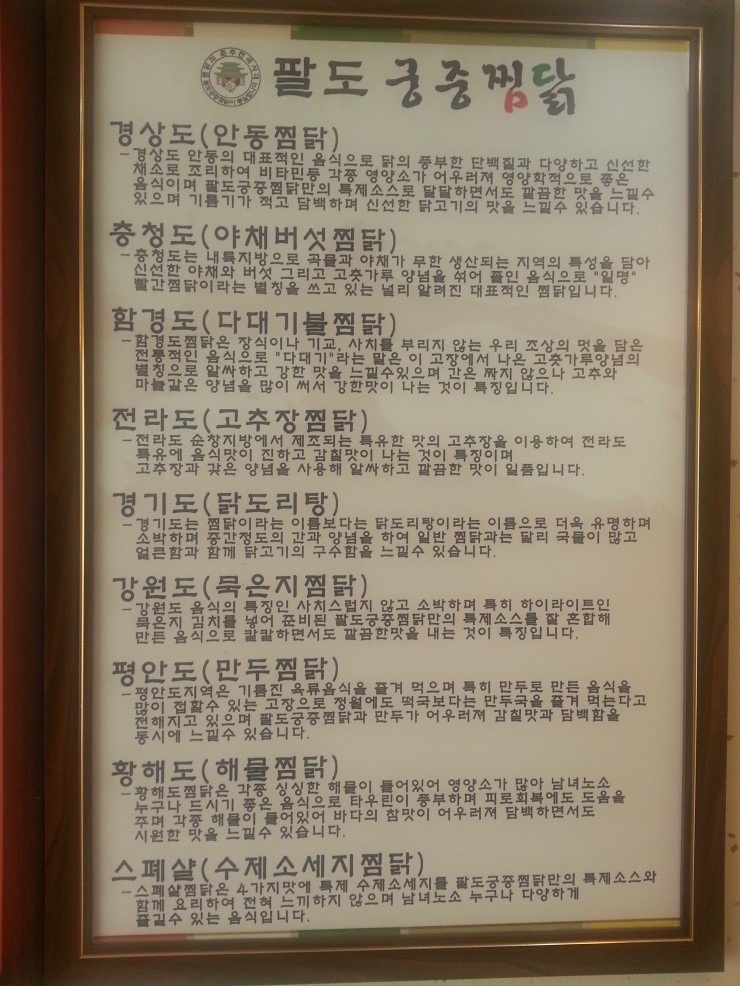 팔도 궁중찜닭
경상도(안동찜닭)
-경상도 안동의 대표적인 음식으로 닭의 풍부한 단백질과 다양하고 신선한
채소로 조리하여 비타민등 각종 영양소가 어우러져 영양학적으로 좋은
음식이며 팔도궁중찜닭만의 특제소스로 달달하면서도 깔끔한 맛을 느낄수
있으며 기름기가 적고 담백하며 신선한 닭고기의 맛을 느낄수 있습니다.
충청도(야채버섯찜닭)
-충청도는 내륙지방으로 곡물과 야채가 무한 생산되는 지역의 특성을 담아
신선한 야채와 버섯 그리고 고춧가루 양념을 섞어 졸인 음식으로 "일명"
빨간찜닭이라는 별칭을 쓰고 있는 널리 알려진 대표적인 찜닭입니다.
함경도(다대기불찜닭)
-함경도찜닭은 장식이나 기교, 사치를 부리지 않는 우리 조상의 멋을 담은
전통적인 음식으로 "다대기"라는 말은 이 고장에서 나온 고춧가루양념의
별칭으로 알싸하고 강한 맛을 느낄수있으며 간은 짜지 않으나 고추와
마늘같은 양념을 많이 써서 강한맛이 나는 것이 특징입니다.
전라도(고추장찜닭)
-전라도 순창지방에서 제조되는 특유한 맛의 고추장을 이용하여 전라도
특유에 음식맛이 진하고 감칠맛이 나는 것이 특징이며
고추장과 갖은 양념을 사용해 알싸하고 깔끔한 맛이 일품입니다.
경기도(닭도리탕)
-경기도는 찜닭이라는 이름보다는 닭도리탕이라는 이름으로 더욱 유명하며
소박하며 중간정도의 간과 양념을 하여 일반 찜닭과는 달리 국물이 많고
얼큰함과 함께 닭고기의 구수함을 느낄수 있습니다.
강원도(묵은지찜닭)
-강원도 음식의 특징인 사치스럽지 않고 소박하며 특히 하이라이트인
묵은지 김치를 넣어 준비된 팔도궁중찜닭만의 특제소스를 잘 혼합해
만든 음식으로 칼칼하면서도 깔끔한맛을 내는 것이 특징입니다.
평안도(만두찜닭)
-평안도지역은 기름진 육류음식을 즐겨 먹으며 특히 만두로 만든 음식을
많이 접할수 있는 고장으로 정월에도 떡국보다는 만두국을 즐겨 먹는다고
전해지고 있으며 팔도궁중찜닭과 만두가 어우러져 감칠맛과 담백함을
동시에 느낄수 있습니다.
황해도(해물찜닭)
-황해도찜닭은 각종 싱싱한 해물이 들어있어 영양소가 많아 남녀노소
누구나 드시기 좋은 음식으로 타우린이 풍부하며 피로회복에도 도움을
주며 각종 해물이 들어있어 바다의 참맛이 어우러져 담백하면서도
시원한 맛을 느낄수 있습니다.
스폐샬(수제소세지찜닭)
-스폐샬찜닭은 4가지맛에 특제 수제소세지를 팔도궁중찜닭만의 특제소스와
함께 요리하여 전혀 느끼하지 않으며 남녀노소 누구나 다양하게
즐길수 있는 음식입니다.